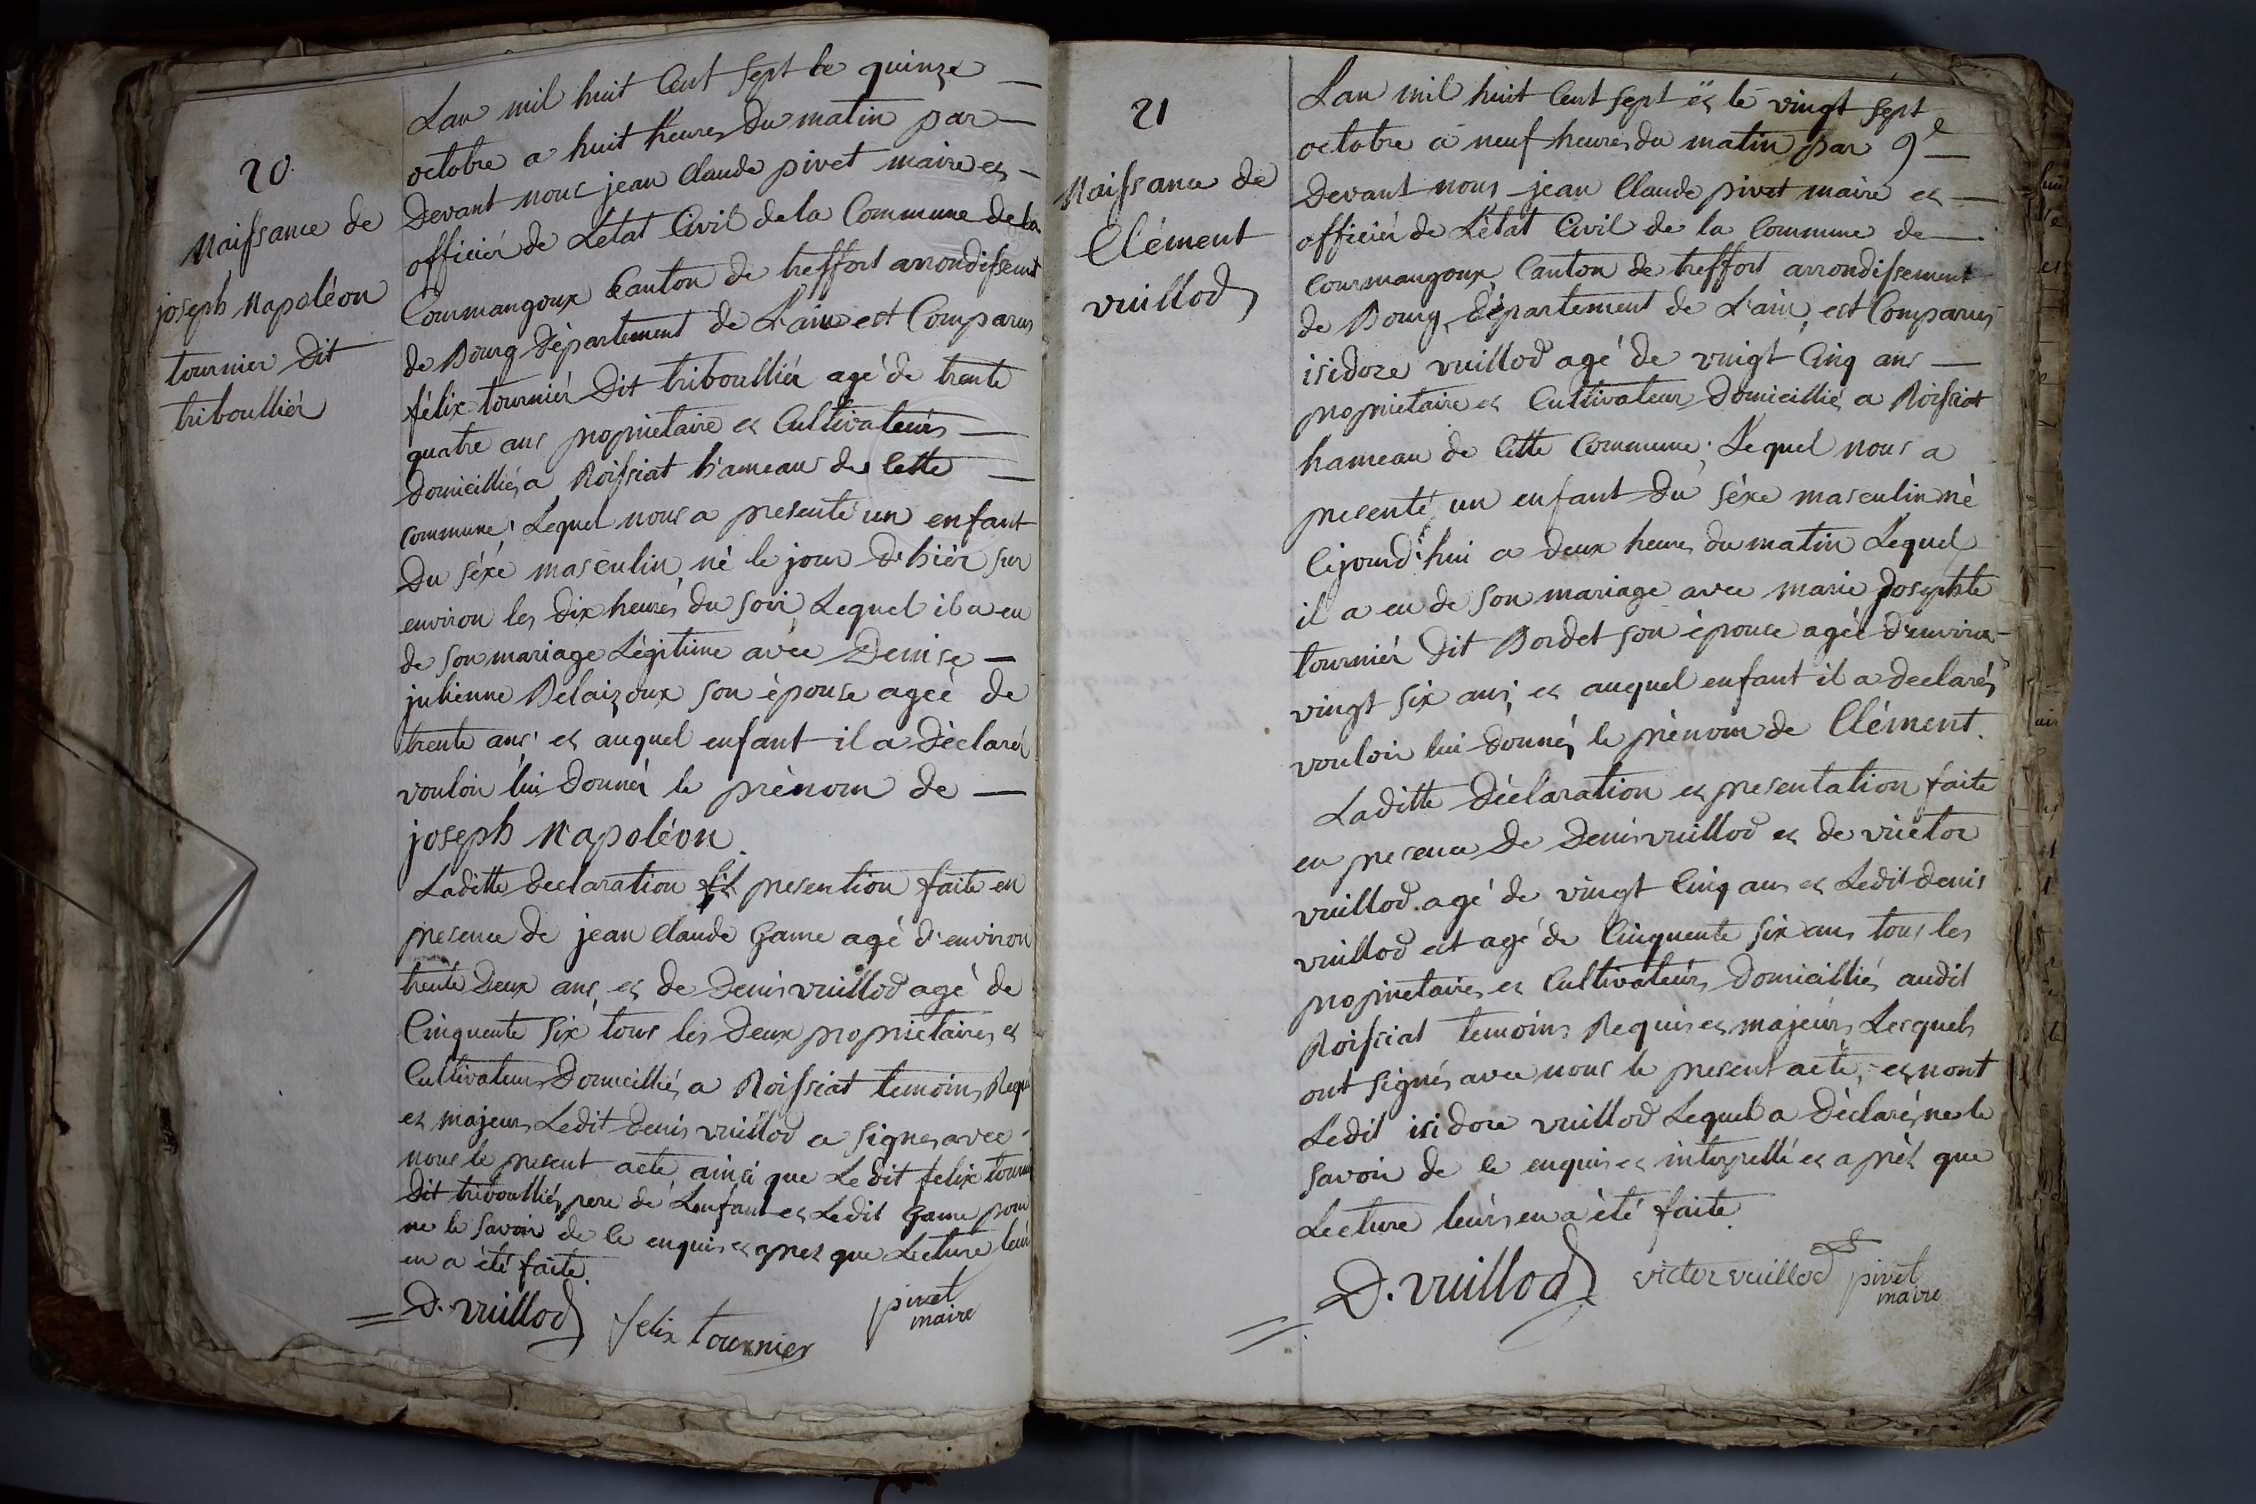 20.
Naissance de
joseph Napoléon
tournier Dit
triboullièr
Lan mil huit Cent sept le quinze —
octobre a huit heures Du matin par —
Devant nous jean Claude pivet maire et —
officièr de Létat Civil de la Commune de la
Courmangoux Canton de treffort arrondissement
de Bourg Département de L'ain est Comparus
félix tournièr Dit triboullièr agé de trente
quatre ans propriétaire et Cultivateurs —
Domicilliés a Roissiat h'ameaus de Cette —
commune, Lequel nous a presenté un enfant
Du séxé masculin né le jour D'hièr sur
environ les Dix heurés du soir Lequel il a eu
de son mariage Légitime avéc Denise —
julienne Delaizoux son épouse ageé de
trente ans, et auquel enfant il a Déclaréz
vouloir lui donnér le prénom de —
joseph Napoléon.
Laditte Declaration et presention faite en
presence de jean Claude Game agé d'environ
trente Deux ans, et de Denis vuillod agé de
Cinquente six tous les Deux proprietaires et
Cultivateurs Domicilliés a Roissiat temoins Requi
et majeurs Ledit denis vuillod a signés avec
nous le present acte ainsi que Ledit felix tourni
Dit triboulliés pere de Lenfant et Ledit Game pour
ne le savoir de ce enquis et apres que Lecture leur
en a été faite.
D. vuillod felix tournier pivet
maire
21
Naissance de
Clément
vuillod
Lan mil huit Cent sept et le vingt sept
octobre a neuf heures du matin par 9e —
Devant nous jean Claude pivet maire et —
officièr de L'état Civil de la Commune de —
Courmangoux, Canton de treffort arrondissement
de Bourg, Département de L'ain, est Comparus
isidore vuillod agé de vingt Cinq ans —
proprietaire et Cultivateurs Domicilliés a Roissiat
hameau de Cette Commune, Lequel nous a
presenté un enfant Du séxe masculin né
Cejourd'hui a deux heures du matin Lequel
il a eu de son mariage avec marie Josephte
tournièr Dit Bordet son épouse agéé d'environ —
vingt six ans, et auquel enfant il a declarés
vouloir lui donnés le prénom de Clément.
Laditte Déclaration et presentation faite
en presence De Denis vuillod et de victor
vuillod agé de vingt Cinq ans et Ledit denis
vuillod est agé de Cinquente six ans tous les
proprietaires et Cultivateurs Domicilliés audit
Roissiat temoins Requis et majeurs Lesquels
ont signés avec nous le present acte, et nont
Ledit isidore vuillod Lequel a Déclarés ne le
savoir de ce enquis et interpellé et aprés que
Lecture leurs en a été faite.
D. vuillod victor vuillod pivet
maire